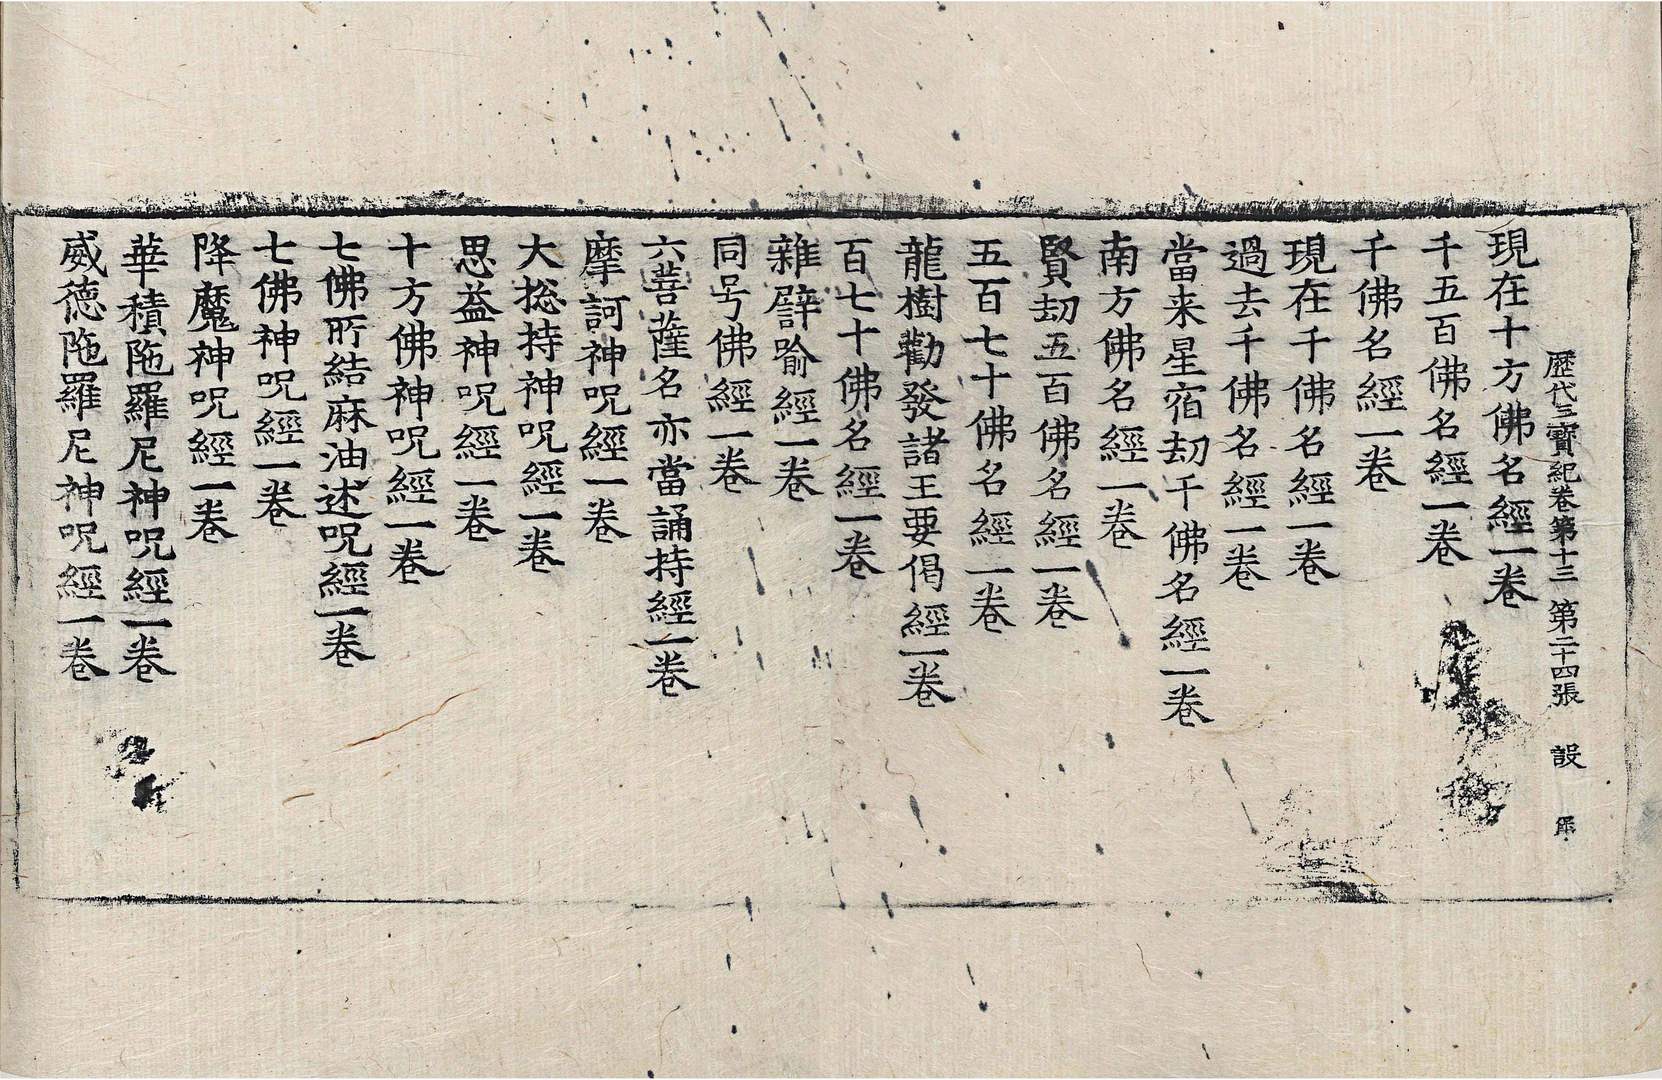 歷代三寶紀卷第十三 第二十四張 設
現在十方佛名經一卷
千五百佛名經一卷
千佛名經一卷
現在千佛名經一卷
過去千佛名經一卷
當来星宿刧千佛名經一卷
南方佛名經一卷
賢刧五百佛名經一卷
五百七十佛名經一卷
龍樹勸發諸王要偈經一卷
百七十佛名經一卷
雜譬喻經一卷
同号佛經一卷
六菩薩名亦當誦持經一卷
摩訶神呪經一卷
大惣持神呪經一卷
思益神呪經一卷
十方佛神呪經一卷
七佛所結麻油述呪經一卷
七佛神呪經一卷
降魔神呪經一卷
華積陁羅尼神呪經一卷
威德陁羅尼神呪經一卷